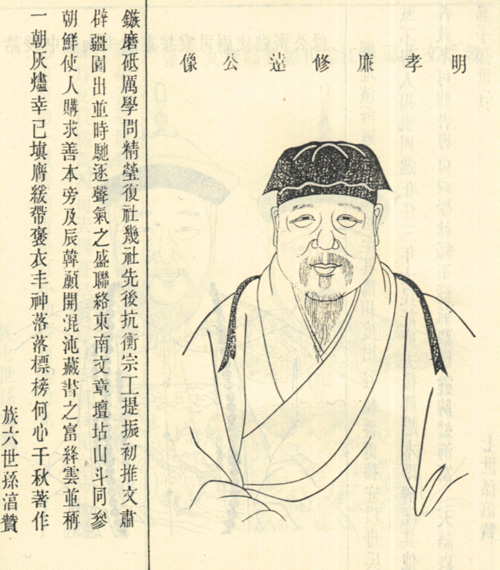 明孝廉修遠公像
鏃磨砥厲學問精瑩復社幾社先後抗衡宗工提振初推文肅
辟疆園出並時馳逐聲氣之盛聯絡東南文章壇坫山斗同參
朝鮮使人購求善本旁及辰韓開混沌藏書之富絳雲並稱
一朝灰燼幸已填膺緩帶褒衣丰神落落標榜何心千秋著作
族六世孫涪贊